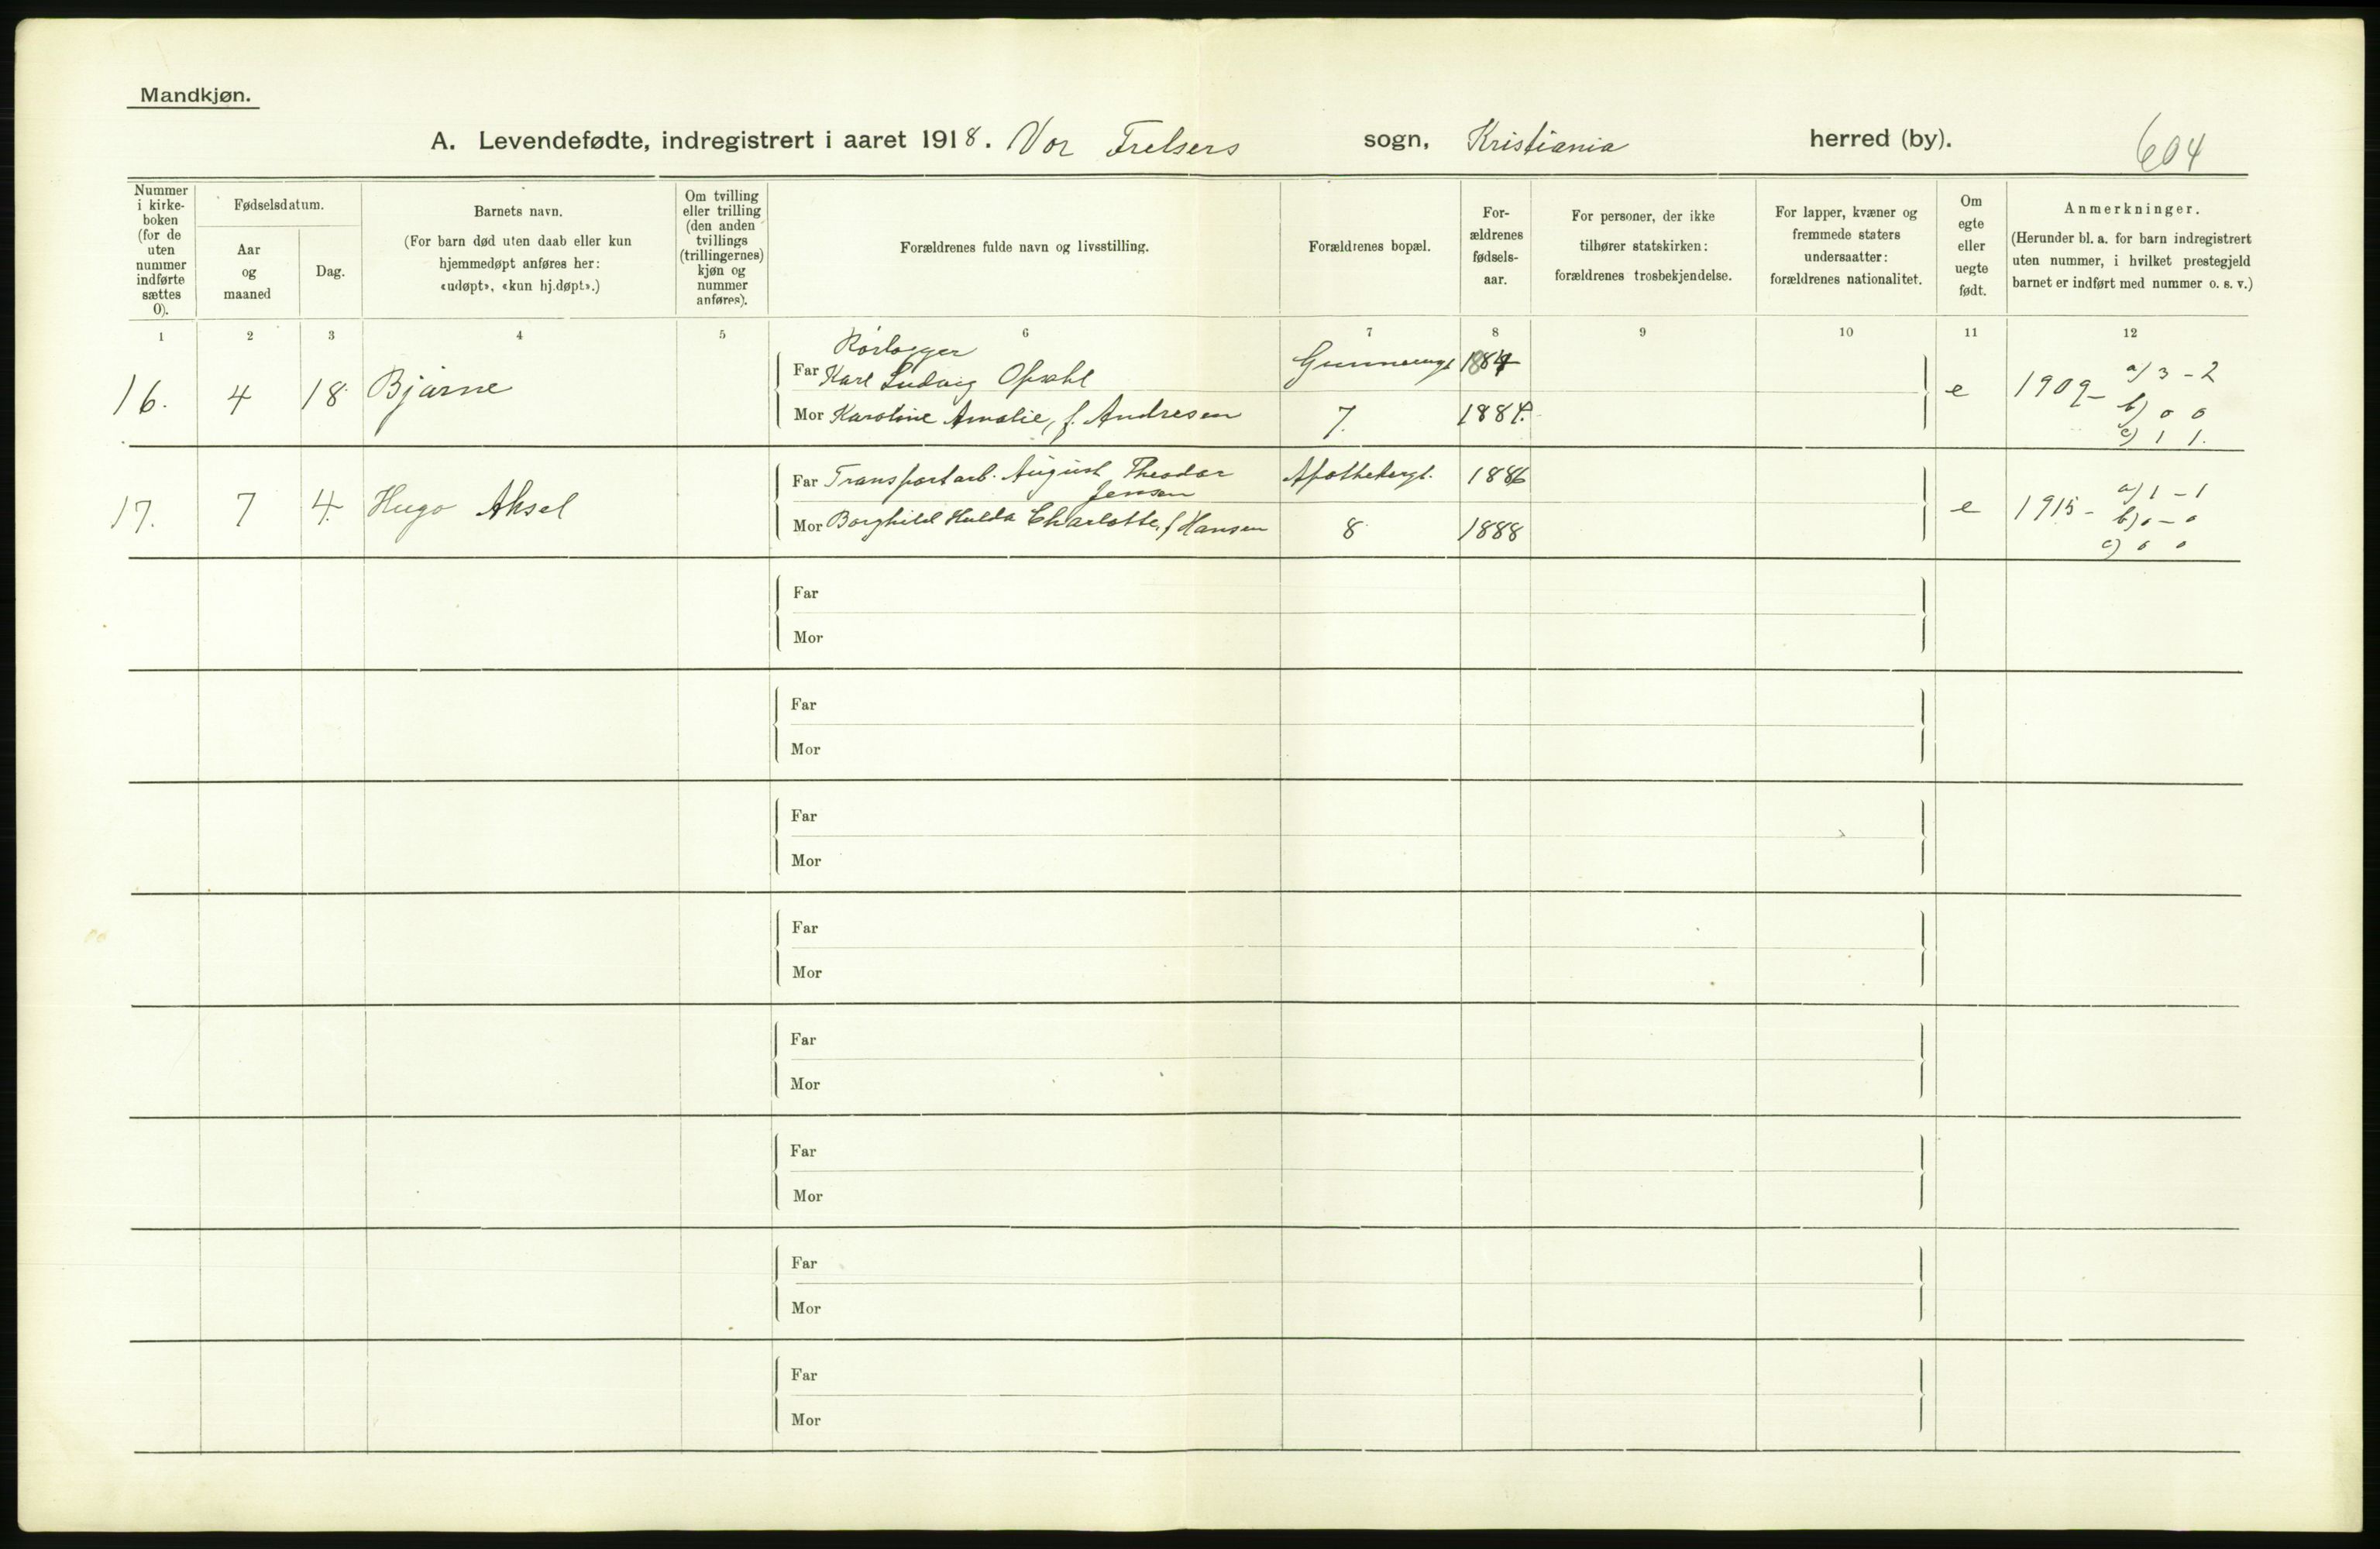 Mandkjøn.
A. Levendefødte, indregistrert i aaret 1918. Vor Frelsers sogn, Kristiania herred (by). 604
Nummer
i kirke-
boken
(for de
uten
nummer
indførte
sættes
0).
Fødselsdatum.
Aar
og
maaned
Dag.
Barnets navn.
(For barn død uten daab eller kun
hjemmedøpt anføres her:
«udøpt», «kun hj.døpt».)
Om tvilling
eller trilling
(den anden
tvillings
(trillingernes)
kjøn og
nummer
anføres).
Forældrenes fulde navn og livsstilling.
Forældrenes bopæl.
For-
ældrenes
fødsels-
aar.
For personer, der ikke
tilhører statskirken:
forældrenes trosbekjendelse.
For lapper, kvæner og
fremmede staters
undersaatter:
forældrenes nationalitet.
Om
egte
eller
uegte
født.
Anmerkninger.
(Herunder bl. a. for barn indregistrert
uten nummer, i hvilket prestegjeld
barnet er indført med nummer o. s. v.)
1 2 3 4 5 6 7 8 9 10 11 12
16. 4 18. Bjarne
Rørlegger
Far Karl Ludvig Opsahl
Mor Karoline Amalie, f. Andresen
7.
1884.
e
1909 -
a) 3 - 2
b) 0 0
c) 1 1.
17. 7 4. Hugo Aksel
Far Transportarb. August Theodor
Jensen
Mor Borghild Hulda Charlotte, f Hansen
Apothekergt.
8.
1886
1888
e
1915 -
a) 1 - 1
b) 0 - 0
c) 0 0
Far
Mor
Far
Mor
Far
Mor
Far
Mor
Far
Mor
Far
Mor
Far
Mor
Far
Mor